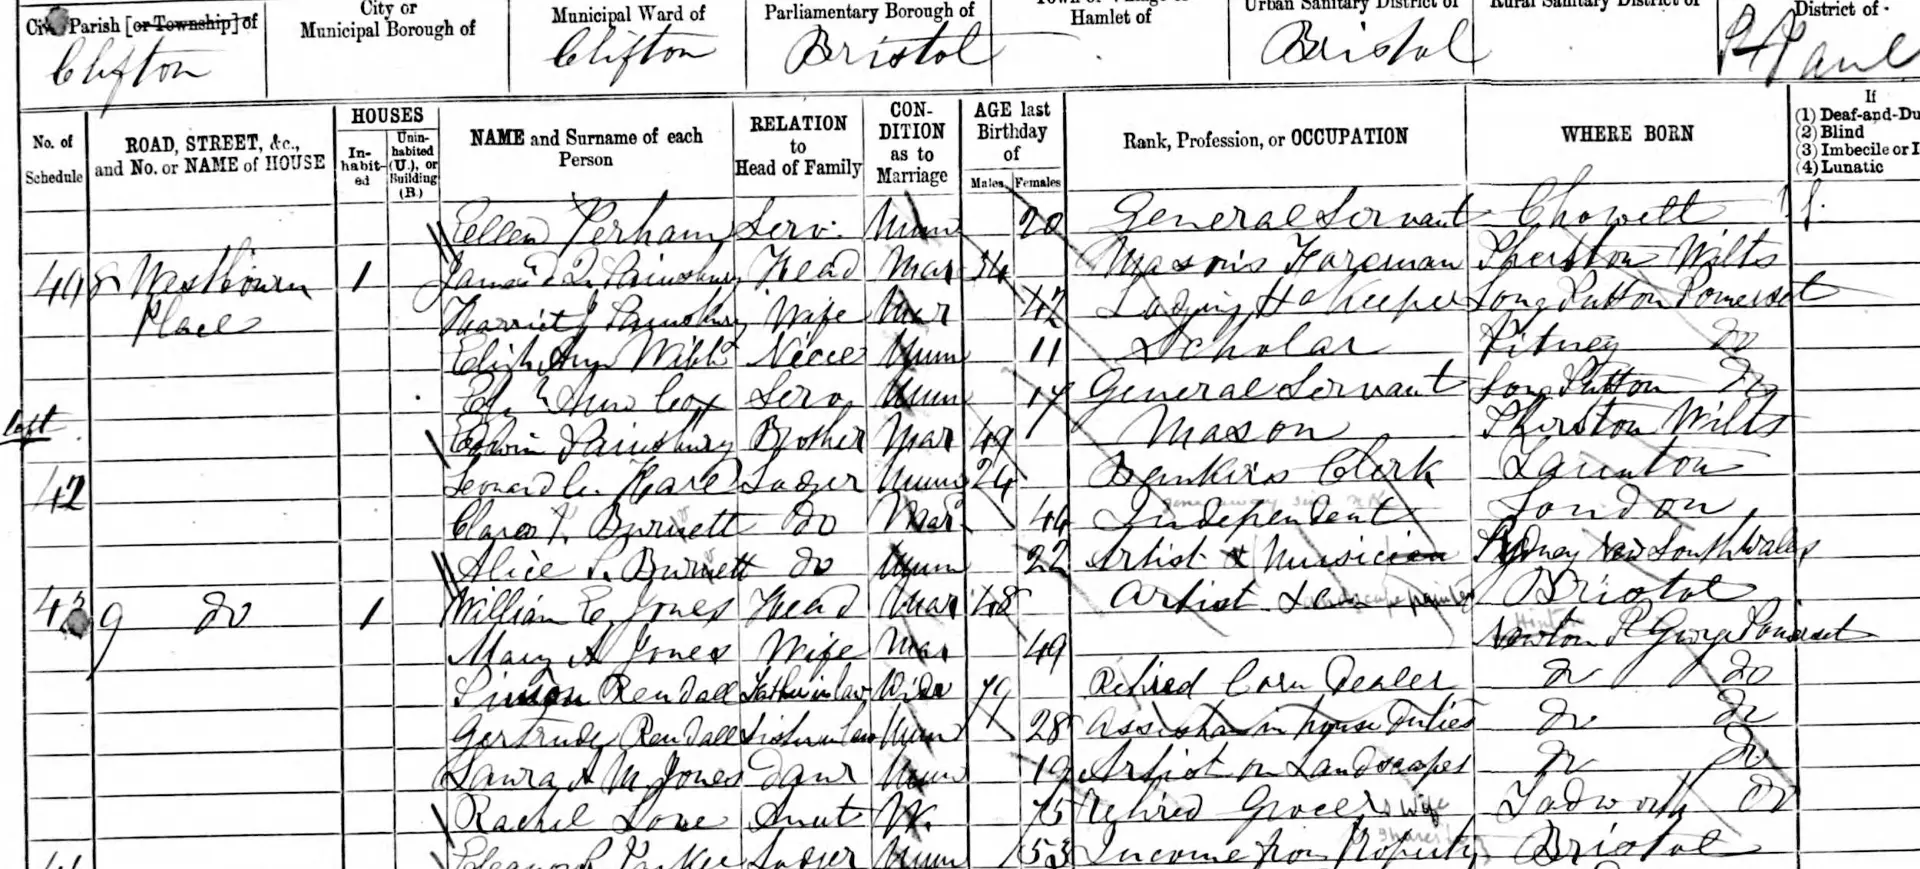 City Parish [or Township] of
Clifton
City or Municipal Borough of
Municipal Ward of
Clifton
Parliamentary Borough of
Bristol
Hamlet of
Urban Sanitary District of
Bristol
Rural Sanitary District of
District of
St Paul
No. of Schedule
ROAD, STREET, &c., and No. or NAME of HOUSE
HOUSES
Inhabited
Uninhabited (U.), or Building (B.)
NAME and Surname of each Person
RELATION to Head of Family
CONDITION as to Marriage
AGE last Birthday of
Males
Females
Rank, Profession, or OCCUPATION
WHERE BORN
If
(1) Deaf-and-Du
(2) Blind
(3) Imbecile or I
(4) Lunatic
Ellen Perham Serv: Unm 20 General Servant
8 Westbourn 1 Sainsbury Head Mar 54 Mason's Foreman Sherston Wilts
Place Harriet J Sainsbury Wife Mar 42 Lodging Ho Keeper Long Sutton Somerset
Ann Webb Niece Unm 11 Scholar Pitney Do
Ann Cox Serv Unm 17 General Servant Long Sutton Do
Edwin Sainsbury Brother Mar 49 Mason Sherston Wilts
42 Leonard Hare Lodger Unm 24 Bankers Clerk Taunton
Burnett do Mar 44 Independent London
Alice S. Burnett do Unm 22 Artist & Musician Sydney New South Wales
43 9 do 1 William E. Jones Head Mar 48 Artist Landscape painter Bristol
Mary A Jones Wife Mar 49 Newton St George Somerset
Simon Rendall Father in law Widr 79 Retired Corn Dealer Do Do
Gertrude Rendall Sister in law Unm 28 Assistan in house Duties Do Do
Laura A M Jones Daur Unm 19 Artist on Landscapes Do Do
Rachel Love Aunt W. 75 Retired Grocers wife Tadworth Do
Eleanor Parker Lodger Unm 53 Income from Property Bristol